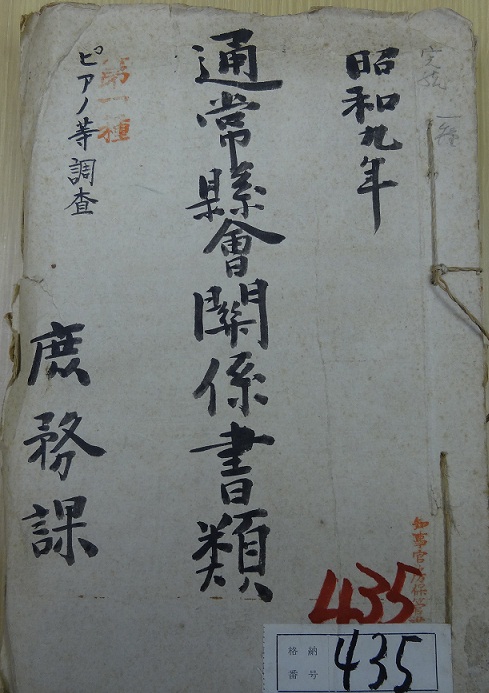 昭和九年
通常縣會關係書類
第一種
ピアノ等調査
庶務課
知事官房保管
435
格納番号
435